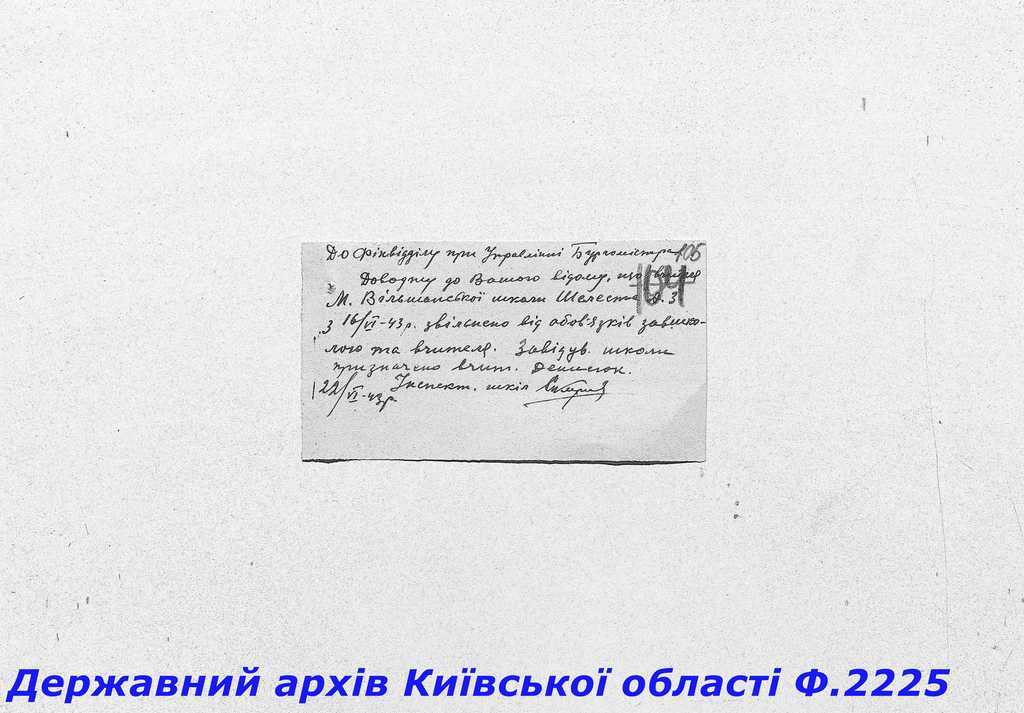 До Фінвідділу при Управлінні Бургомістра 105
Доводжу до Вашого відому, що 104
М. Вільшанської школи Шелеста З
з 16/VI-43 р. звільнено від обов'язків завшко-
лою та вчителя. Завідув. школи
призначено вчит. Денисюк.
Інспект. шкіл
22/VI-43р
Державний архів Київської області Ф.2225